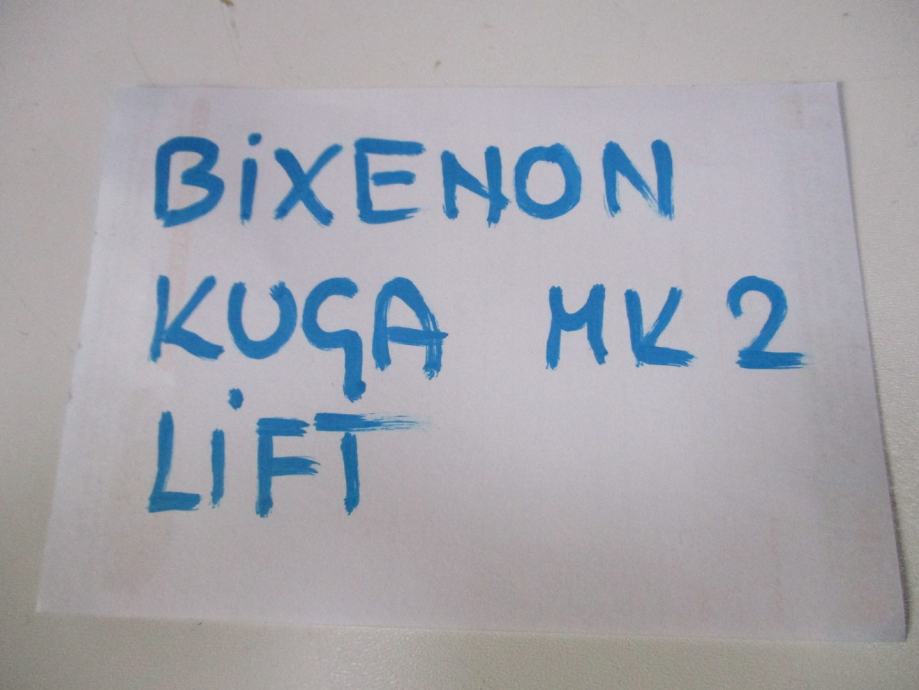 BiXENON
KUGA MK 2
LiFT